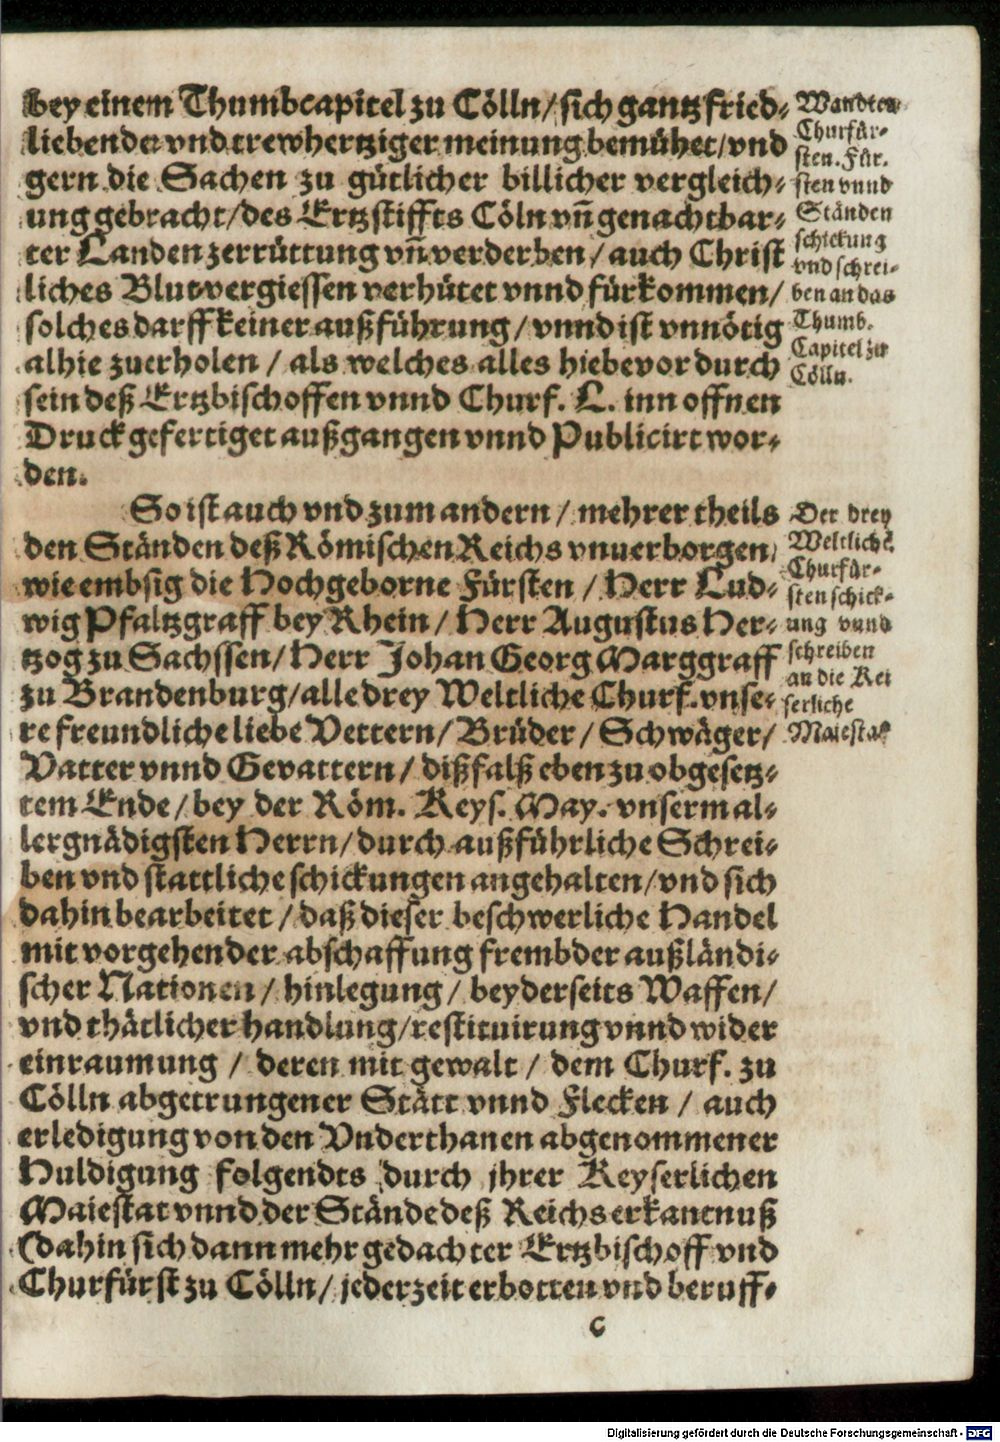 bey einem Thumbcapitel zu Cölln/ sich gantz fried-
liebender vnd trewhertziger meinung bemühet/ vnd
gern die Sachen zu gütlicher billicher vergleich-
ung gebracht/ des Ertzstiffts Cöln vñ genachtbar-
ter Landen zerrüttung vñ verderben / auch Christ
liches Blutvergiessen verhütet vnnd fürkommen/
solches darff keiner außführung / vnnd ist vnnötig
alhie zuerholen / als welches alles hiebevor durch
sein deß Ertzbischoffen vnnd Churf. L. inn offnen
Druck gefertiget außgangen vnnd Publicirt wor-
den.
Wandten
Churfür-
sten. Für.
sten vnnd
Ständen
schickung
vnd schrei-
ben an das
Thumb.
Capitel zu
Cölln.
So ist auch vnd zum andern / mehrer theils
den Ständen deß Römischen Reichs vnuerborgen,
wie embsig die Hochgeborne Fürsten / Herr Lud-
wig Pfaltzgraff bey Rhein/ Herr Augustus Her-
tzog zu Sachssen/ Herr Johan Georg Marggraff
zu Brandenburg/ alle drey Weltliche Churf. vnse-
re freundliche liebe Vettern/ Brüder / Schwäger/
Vatter vnnd Gevattern / dißfalß eben zu obgesetz-
tem Ende/ bey der Röm. Keys. May. vnserm al-
lergnädigsten Herrn/ durch außführliche Schrei-
ben vnd stattliche schickungen angehalten/ vnd sich
dahin bearbeitet / daß dieser beschwerliche Handel
mit vorgehender abschaffung frembder außländi-
scher Nationen / hinlegung / beyderseits Waffen/
vnd thätlicher handlung/ restituirung vnnd wider
einraumung / deren mit gewalt / dem Churf. zu
Cölln abgetrungener Stätt vnnd Flecken / auch
erledigung von den Vnderthanen abgenommener
Huldigung folgendts durch jhrer Keyserlichen
Maiestat vnnd der Stände deß Reichs erkantnuß
(dahin sich dann mehr gedachter Ertzbischoff vnd
Churfürst zu Cölln/ jederzeit erbotten vnd beruff-
Der drey
Weltliche
Churfür-
sten schick-
ung vnnd
schreiben
an die Kei
serliche
Maiestat
C
Digitalisierung gefördert durch die Deutsche Forschungsgemeinschaft - DFG